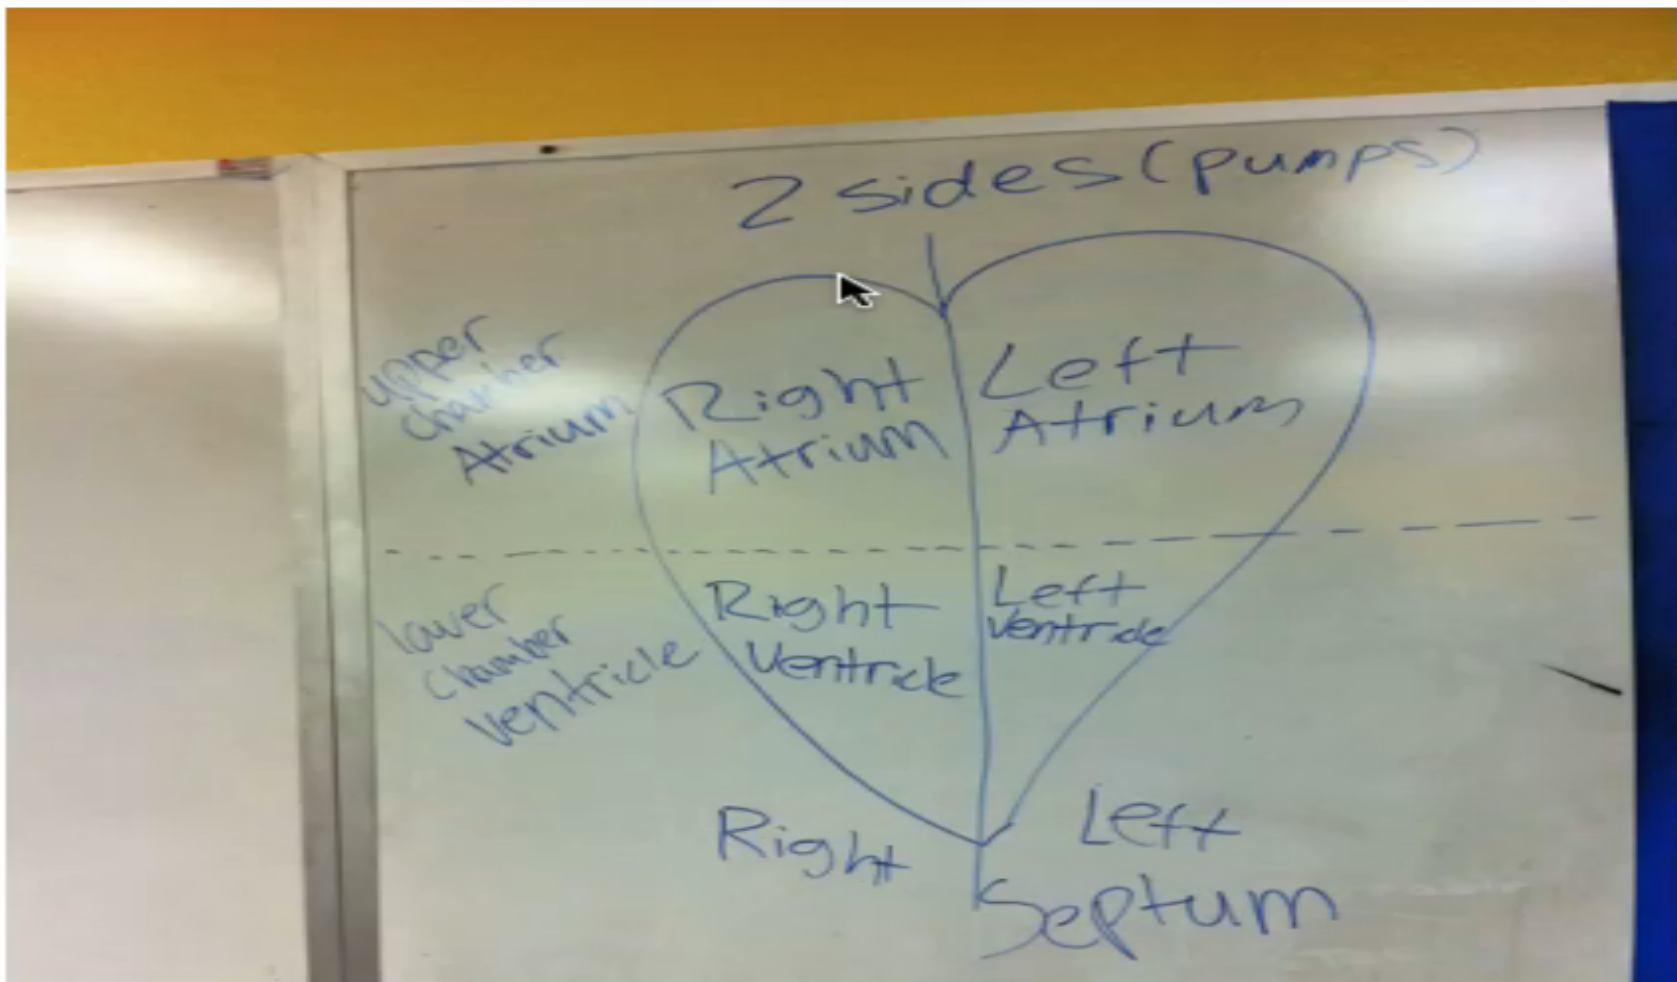 2 sides (pumps)
upper
chamber
Atrium
Right
Atrium
Left
Atrium
lower
chamber
ventricle
Right
Ventricle
Left
Ventricle
Right
Left
Septum